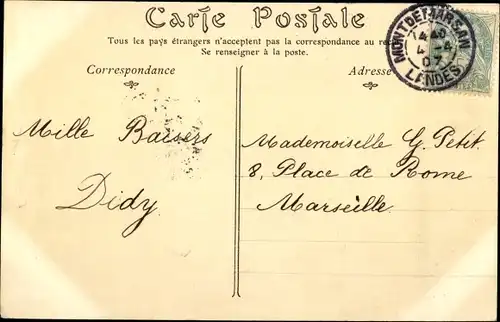 Carte Postale
Tous les pays étrangers n'acceptent pas la correspondance au rec
Se renseigner à la poste.
Correspondance
Adresse
MONT-DE-MARSAN
14 40
4 -4
07
LANDES
Mille Baisers
Didy.
Mademoiselle G. Petit.
8, Place de Rome
Marseille.